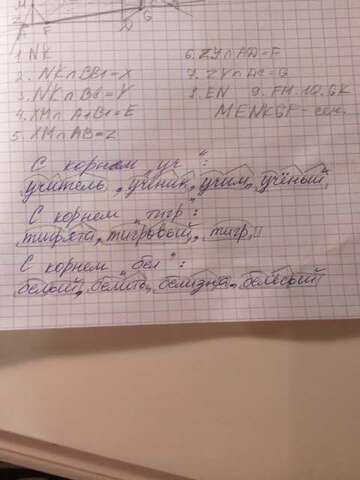 Z
A F D G
1. NK
2. NK ∩ BB1 = X
3. NK ∩ BC = Y
4. XM ∩ A1B1 = E
5. XM ∩ AB = Z
6. ZY ∩ AD = F
7. ZY ∩ DC = G
8. EN 9. FM 10. GK
MENKGF - сеч.
С корнем „уч“:
учитель, ученик, учим, учёный,
С корнем „тигр“:
тигрята, тигровый, тигр,
С корнем „бел“:
белый, белить, белизна, белёсый